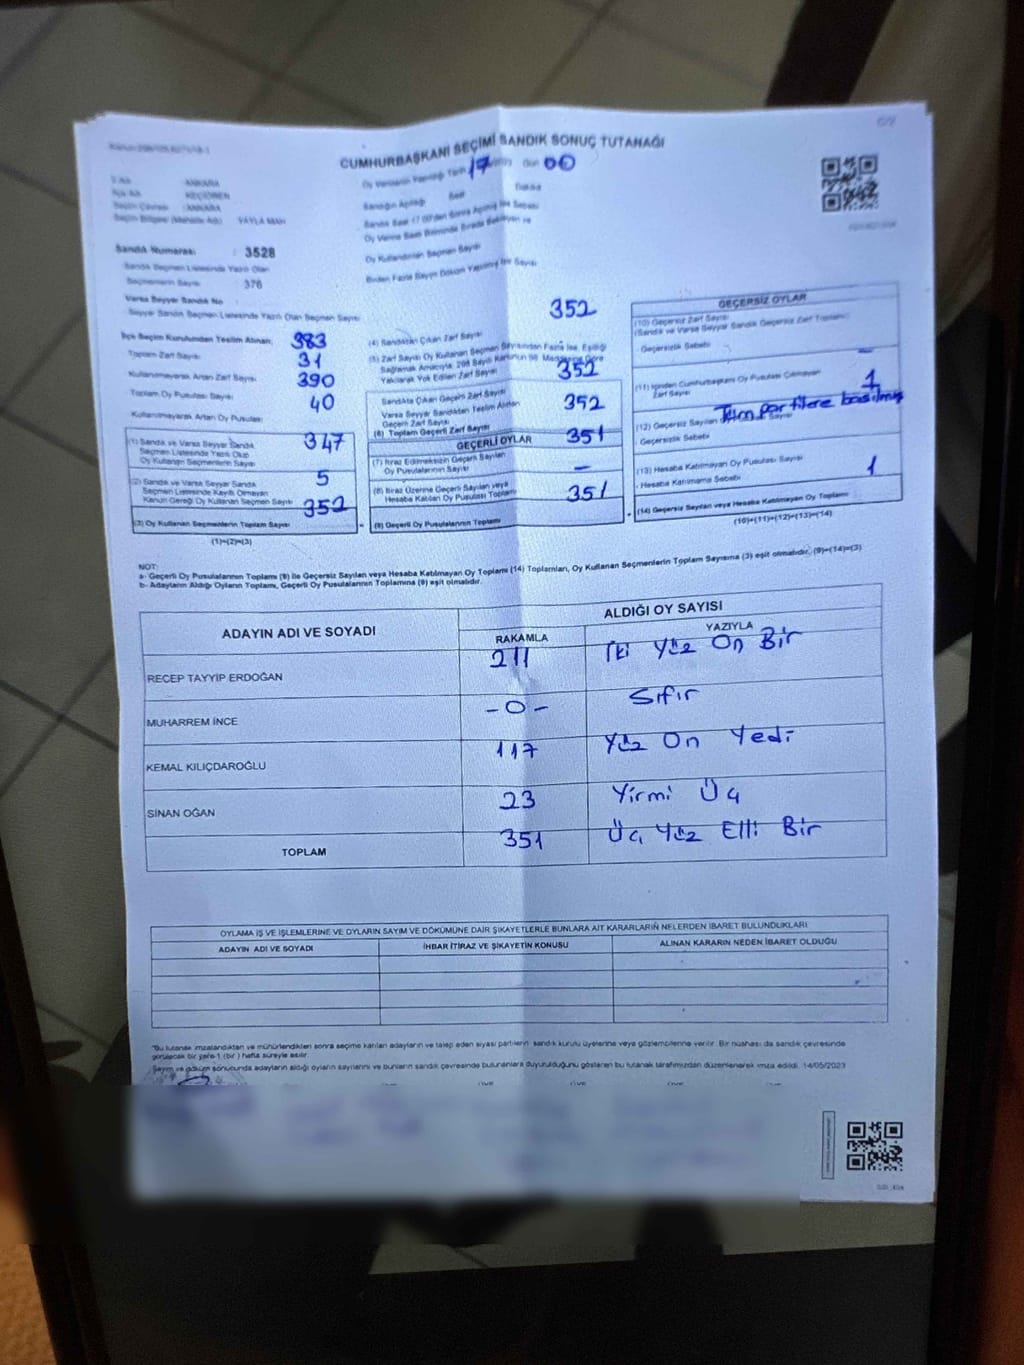 CUMHURBAŞKANI SEÇİMİ SANDIK SONUÇ TUTANAĞI
Oy Vermenin Yapıldığı Tarih 17 00
ANKARA
KEÇİÖREN
Seçim Çevresi : ANKARA
YAYLA MAH
Sandığın Açılışı Saat Dakika
Sandık Numarası : 3528
Sandık Seçmen Listesinde Yazılı Olan
Seçmenlerin Sayısı 376
Oy Kullandırılan Seçmen Sayısı
Birden Fazla Sayım Döküm Yapılmış ise Sayısı
Varsa Seyyar Sandık No
Seyyar Sandık Seçmen Listesinde Yazılı Olan Seçmen Sayısı
İlçe Seçim Kurulundan Teslim Alınan, 383
Toplam Zarf Sayısı 31
Kullanılmayarak Artan Zarf Sayısı 390
Toplam Oy Pusulası Sayısı 40
Kullanılmayarak Artan Oy Pusulası
(1) Sandık ve Varsa Seyyar Sandık 347
Seçmen Listesinde Yazılı Olup
Oy Kullanan Seçmenlerin Sayısı
(2) Sandık ve Varsa Seyyar Sandık 5
Seçmen Listesinde Kayıtlı Olmayan
Kanun Gereği Oy Kullanan Seçmen Sayısı 352
(3) Oy Kullanan Seçmenlerin Toplam Sayısı
(1)+(2)=(3)
352
(4) Sandıktan Çıkan Zarf Sayısı
(5) Zarf Sayısı Oy Kullanan Seçmen Sayısından Fazla İse, Eşitliği
Sağlamak Amacıyla, 298 Sayılı Kanunun 98. Maddesine Göre
Yakılarak Yok Edilen Zarf Sayısı 352
Sandıkta Çıkan Geçerli Zarf Sayısı
Varsa Seyyar Sandıktan Teslim Alınan 352
Geçerli Zarf Sayısı
(6) Toplam Geçerli Zarf Sayısı
GEÇERLİ OYLAR 351
(7) İtiraz Edilmeksizin Geçerli Sayılan
Oy Pusulalarının Sayısı –
(8) İtiraz Üzerine Geçerli Sayılan veya
Hesaba Katılan Oy Pusulası Toplamı 351
(9) Geçerli Oy Pusulalarının Toplamı
GEÇERSİZ OYLAR
(10) Geçersiz Zarf Sayısı
(Sandık ve Varsa Seyyar Sandık Geçersiz Zarf Toplamı)
- Geçersizlik Sebebi
–
(11) İçinden Cumhurbaşkanı Oy Pusulası Çıkmayan
Zarf Sayısı 1
Tüm partilere basılmış
(12) Geçersiz Sayılan Sayısı
- Geçersizlik Sebebi
(13) Hesaba Katılmayan Oy Pusulası Sayısı 1
- Hesaba Katılmama Sebebi
(14) Geçersiz Sayılan veya Hesaba Katılmayan Oy Toplamı
(10)+(11)+(12)+(13)=(14)
NOT:
a- Geçerli Oy Pusulalarının Toplamı (9) ile Geçersiz Sayılan veya Hesaba Katılmayan Oy Toplamı (14) Toplamları, Oy Kullanan Seçmenlerin Toplam Sayısına (3) eşit olmalıdır. (9)+(14)=(3)
b- Adayların Aldığı Oyların Toplamı, Geçerli Oy Pusulalarının Toplamına (9) eşit olmalıdır.
ADAYIN ADI VE SOYADI
ALDIĞI OY SAYISI
RAKAMLA YAZIYLA
RECEP TAYYİP ERDOĞAN 211 İki Yüz On Bir
MUHARREM İNCE - 0 - Sıfır
KEMAL KILIÇDAROĞLU 117 Yüz On Yedi
SİNAN OĞAN 23 Yirmi Üç
TOPLAM 351 Üç Yüz Elli Bir
OYLAMA İŞ VE İŞLEMLERİNE VE OYLARIN SAYIM VE DÖKÜMÜNE DAİR ŞİKAYETLERLE BUNLARA AİT KARARLARIN NELERDEN İBARET BULUNDUKLARI
ADAYIN ADI VE SOYADI İHBAR İTİRAZ VE ŞİKAYETİN KONUSU ALINAN KARARIN NEDEN İBARET OLDUĞU
"Bu tutanak imzalandıktan ve mühürlendikten sonra seçime katılan adayların ve talep eden siyasi partilerin sandık kurulu üyelerine veya gözlemcilerine verilir. Bir nüshası da sandık çevresinde
görülecek bir yere 1 (bir) hafta süreyle asılır.
Sayım ve döküm sonucunda adayların aldığı oyların sayılarını ve bunların sandık çevresinde bulunanlara duyurulduğunu gösteren bu tutanak tarafımızdan düzenlenerek imza edildi. 14/05/2023